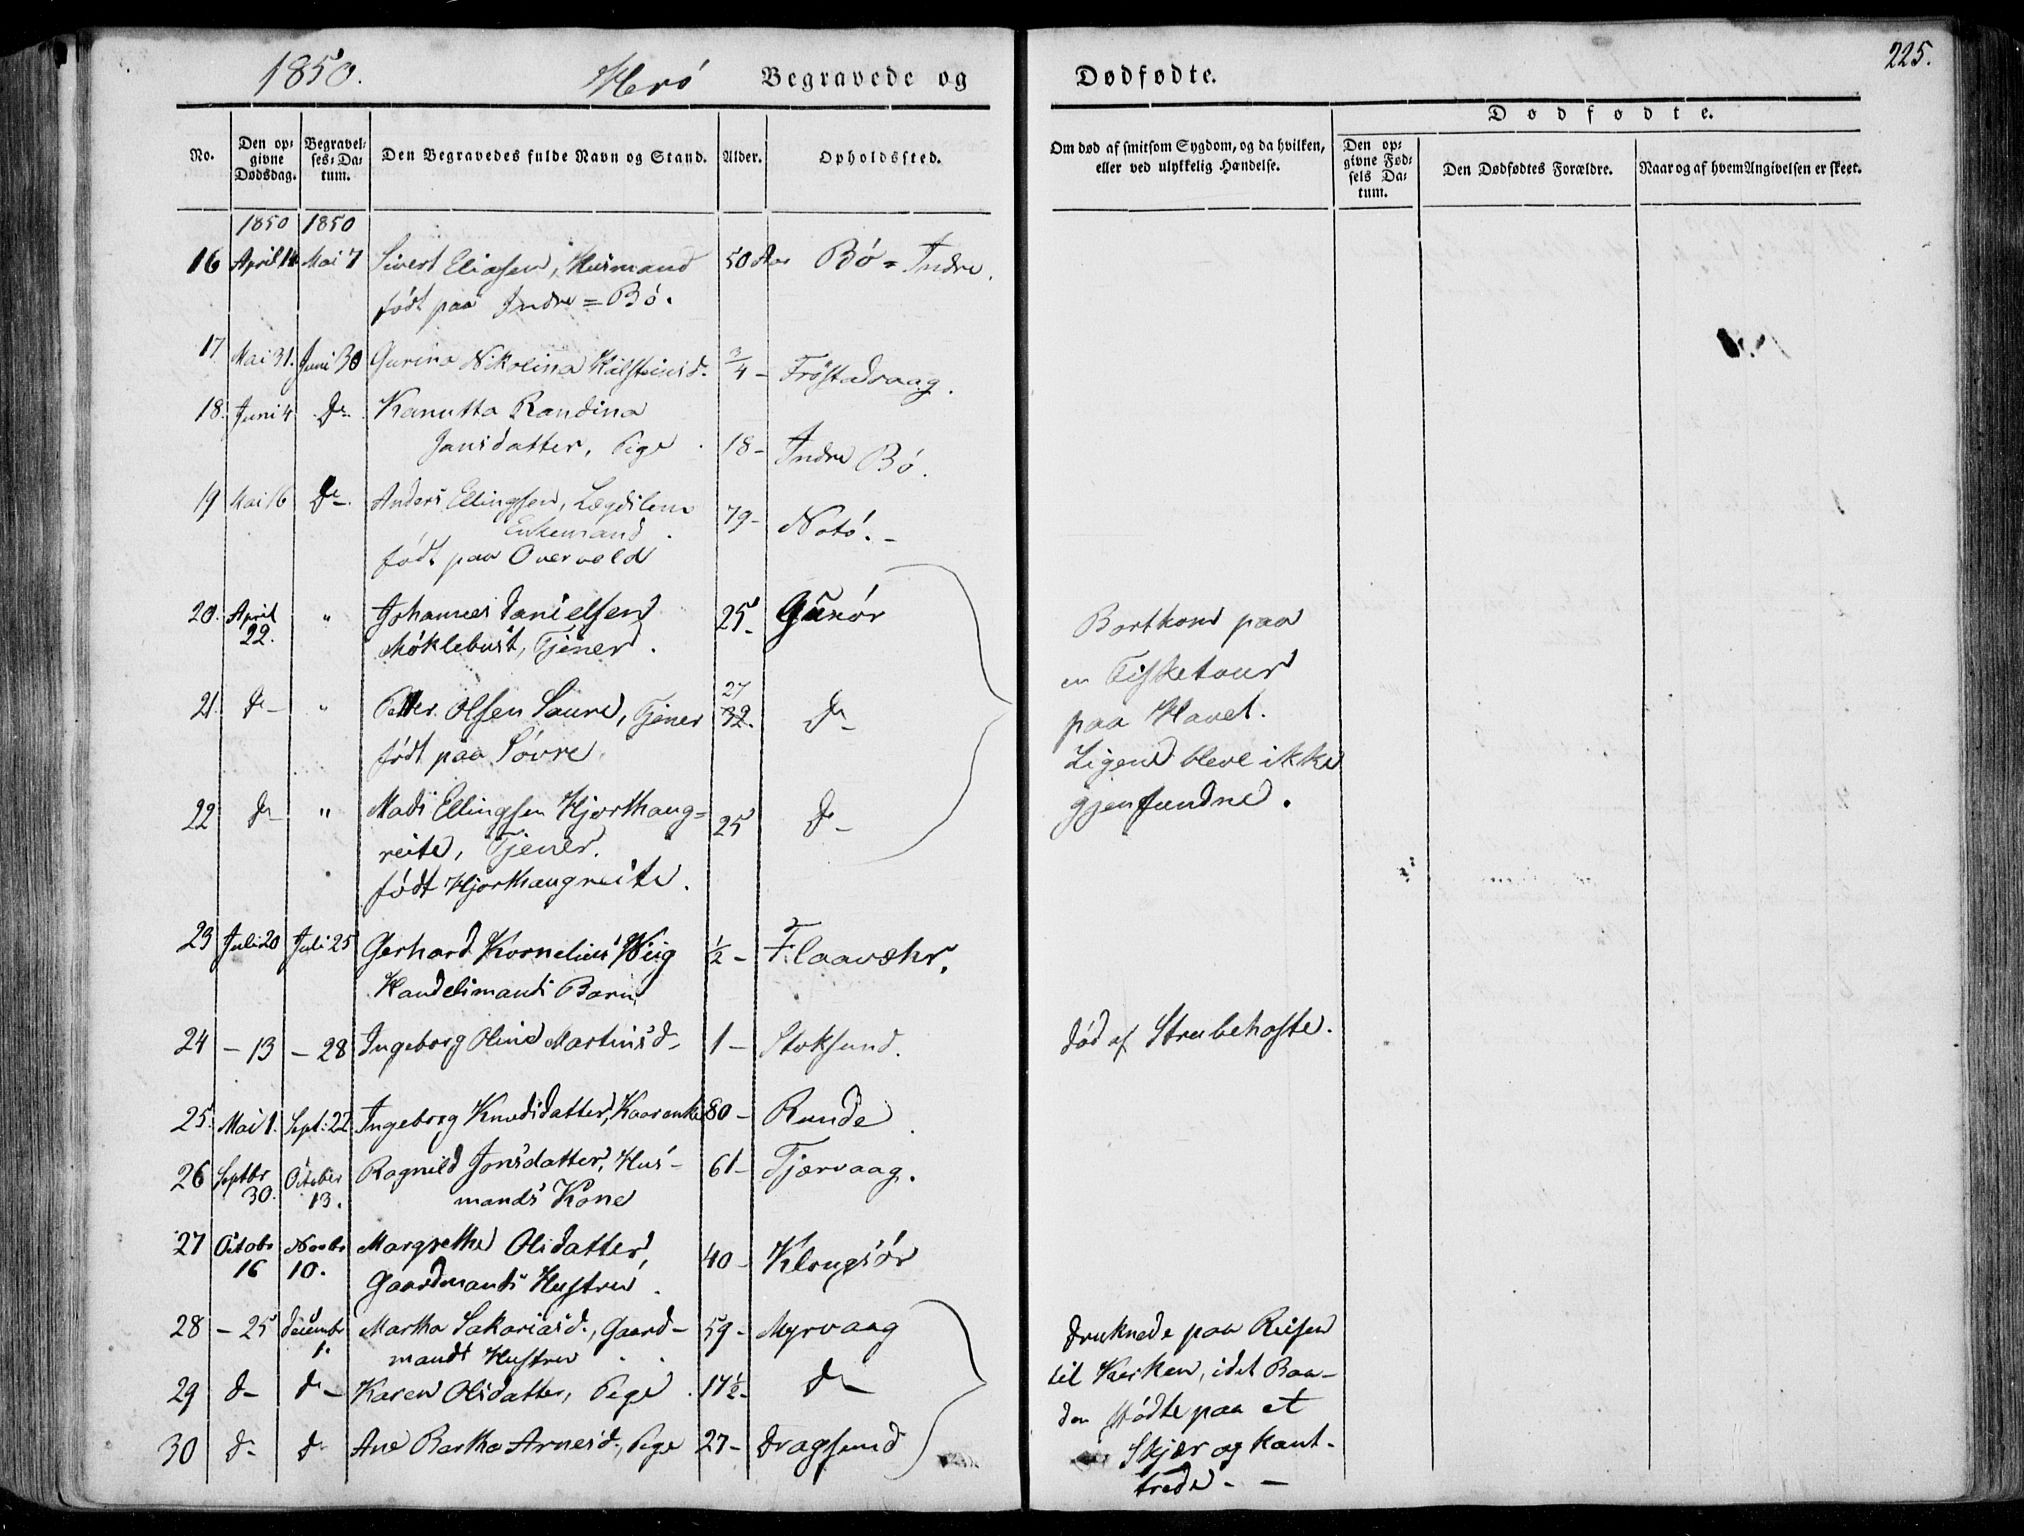 1850. Herö Begravede og Dødfødte. 225.
No. Den opgivne Dødsdag. Begravelses-Datum. Den Begravedes fulde Navn og Stand. Alder. Opholdssted. Om død af smitsom Sygdom, og da hvilken, eller ved ulykkelig Hændelse. Dødfødte. Den opgivne Fødsels Datum. Den Dødfødtes Forældre. Naar og af hvem Angivelsen er skeet.
1850 1850
16 April 14 Mai 7 Sivert Eliasen, Husmand 50 Aar Bö = Indre.
født paa Indre = Bö.
17 Mai 31. Juni 30 Gurine Nikolina Hilsteinsd. 3/4 - Fröstadvaag.
18. Juni 4 Do Kanutta Randina
Jansdatter, Pige. 18 - Indre Bö.
19 Mai 16 Do Anders Ellingsen, Lægdslem
Enkemand. 79 - Notö. -
født paa Overvold
20. April 22. " Johannes Danielsen 25. Gurör
Möklebust, Tjener.
21. Do " Petter Olsen Saure, Tjener 27 32. Do
født paa Sövre
22 Do " Mads Ellingsen Hjorthaug=
reite, Tjener. 25 Do
født Hjorthaugreite.
Bortkom paa
en Fisketour
paa Havet.
Ligene bleve ikke
gjenfundne.
23 Juli 20 Juli 25 Gerhard Kornelius Wiig 1/2 - Flaavæhr.
Handelsmands Barn
24 - 13 - 28 Ingeborg Oline Martinsd. 1 - Stoksund. død af Strubehoste.
25. Mai 1. Sept: 22 Ingeborg Knudsdatter, Kaarenke 80 - Runde.
26 Septbr 30. October 13. Ragnild Jonsdatter, Hus- 61 - Tjærvaag.
mands Kone
27 Octobr 16 Novbr 10. Margrethe Olsdatter, 40 - Klongsör
Gaardmands Hustru.
28 - 25 Decembr 1. Martha Sakariasd., Gaard- 59 - Myrvaag
mands Hustru
29 Do Do Karen Olsdatter, Pige. 17 1/2 - Do
30 Do Do Ane Bertha Arnesd., Pige 27 - Dragsund
Druknede paa Reisen
til Kirken, idet Baa-
den stødte paa et
Skjær og kant-
rede. -